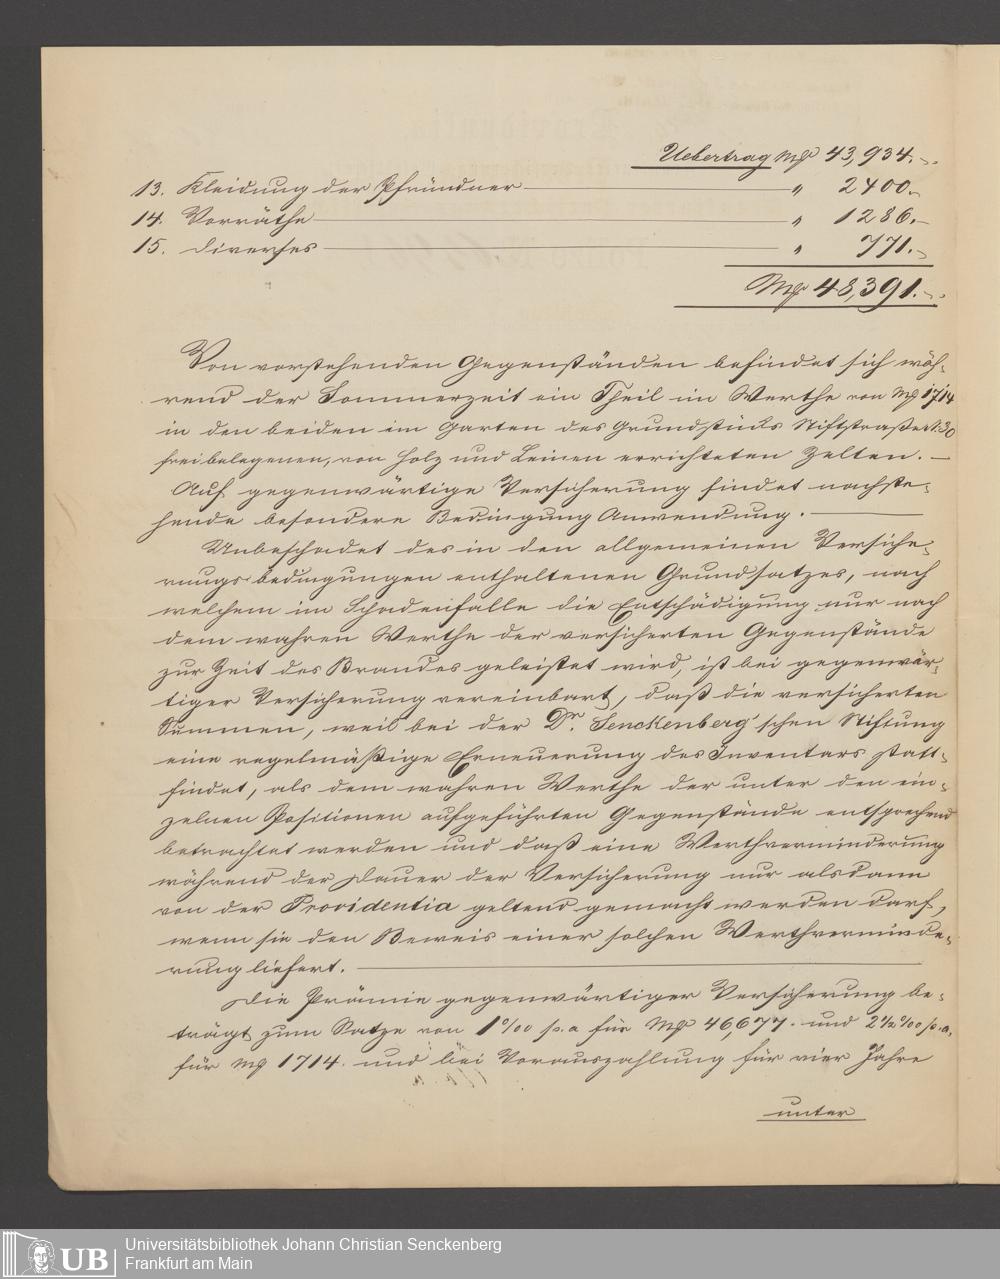 Uebertrag Mk 43,934.-.
13. Kleidung der Pfründner — " 2400.-
14. Vorräthe — " 1286.-
15. Diverses — " 771.-
Mk 48,391.-.
Von vorstehenden Gegenständen befindet sich wäh-
rend der Sommerzeit ein Theil im Werthe von Mk 1714
in den beiden im Garten des Grundstücks Stiftstraße N: 30
frei belegenen, von Holz und Leinen errichteten Zelten. —
Auf gegenwärtige Versicherung findet nachste-
hende besondere Bedingung Anwendung. —
Unbeschadet des in den allgemeinen Versiche-
rungsbedingungen enthaltenen Grundsatzes, nach
welchem im Schadenfalle die Entschädigung nur nach
dem wahren Werthe der versicherten Gegenstände
zur Zeit des Brandes geleistet wird, ist bei gegenwär-
tiger Versicherung vereinbart, daß die versicherten
Summen, weil bei der Dr. Senckenberg'schen Stiftung
eine regelmäßige Erneuerung des Inventars statt-
findet, als dem wahren Werthe der unter den ein-
zelnen Positionen aufgeführten Gegenstände entsprechend
betrachtet werden und daß eine Werthverminderung
während der Dauer der Versicherung nur alsdann
von der Providentia geltend gemacht werden darf,
wenn sie den Beweis einer solchen Werthverminde-
rung liefert. —
Die Prämie gegenwärtiger Versicherung be-
trägt zum Satze von 1 ‰ p. a für Mk 46,677. und 2½ ‰ p. a.
für Mk 1714. und bei Vorauszahlung für vier Jahre
unter
UB
Universitätsbibliothek Johann Christian Senckenberg
Frankfurt am Main